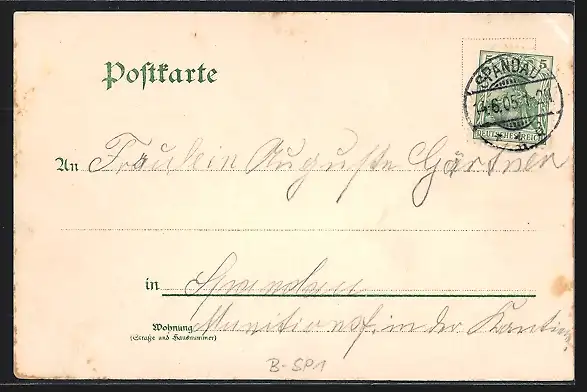 Postkarte
5 5
SPANDAU
4.6.05.1-2N.
DEUTSCHES REICH
An Fräulein Auguste Gärtner
in Spandau
Wohnung Munitionsf. in der Kantine
(Straße und Hausnummer)
B-SP1